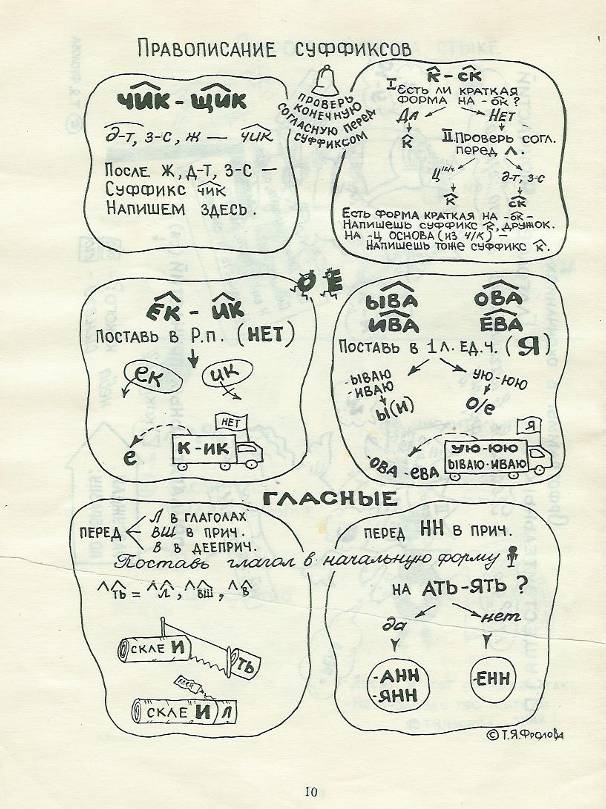 Правописание суффиксов
ЧИК - ЩИК
д-т, з-с, ж — чик
После ж, д-т, з-с —
Суффикс чик
Напишем здесь.
Проверь
конечную
согласную перед
суффиксом
К - СК
I. Есть ли краткая
форма на -ок?
Да Нет
к
II. Проверь согл.
перед Л.
ц д-т, з-с
к ск
Есть форма краткая на -ок-
Напишешь суффикс к, дружок.
На -ц основа (из ч/к) —
Напишешь тоже суффикс к.
О Е
ЕК - ИК
Поставь в Р.п. (НЕТ)
ек ик
НЕТ
е
К-ИК
ЫВА ОВА
ИВА ЕВА
Поставь в 1 л. ед.ч. (Я)
-ываю
-иваю
ую-юю
ы(и)
о/е
Я
УЮ-ЮЮ
ЫВАЮ-ИВАЮ
-ОВА-ЕВА
ГЛАСНЫЕ
ПЕРЕД
Л в глаголах
ВШ в прич.
В в дееприч.
ПЕРЕД НН в прич.
Поставь глагол в начальную форму
^ть = ^л, ^вш, ^в
СКЛЕ И ТЬ
СКЛЕ И Л
НА АТЬ-ЯТЬ ?
да нет
-АНН
-ЯНН
-ЕНН
© Т.Я.Фролова
10